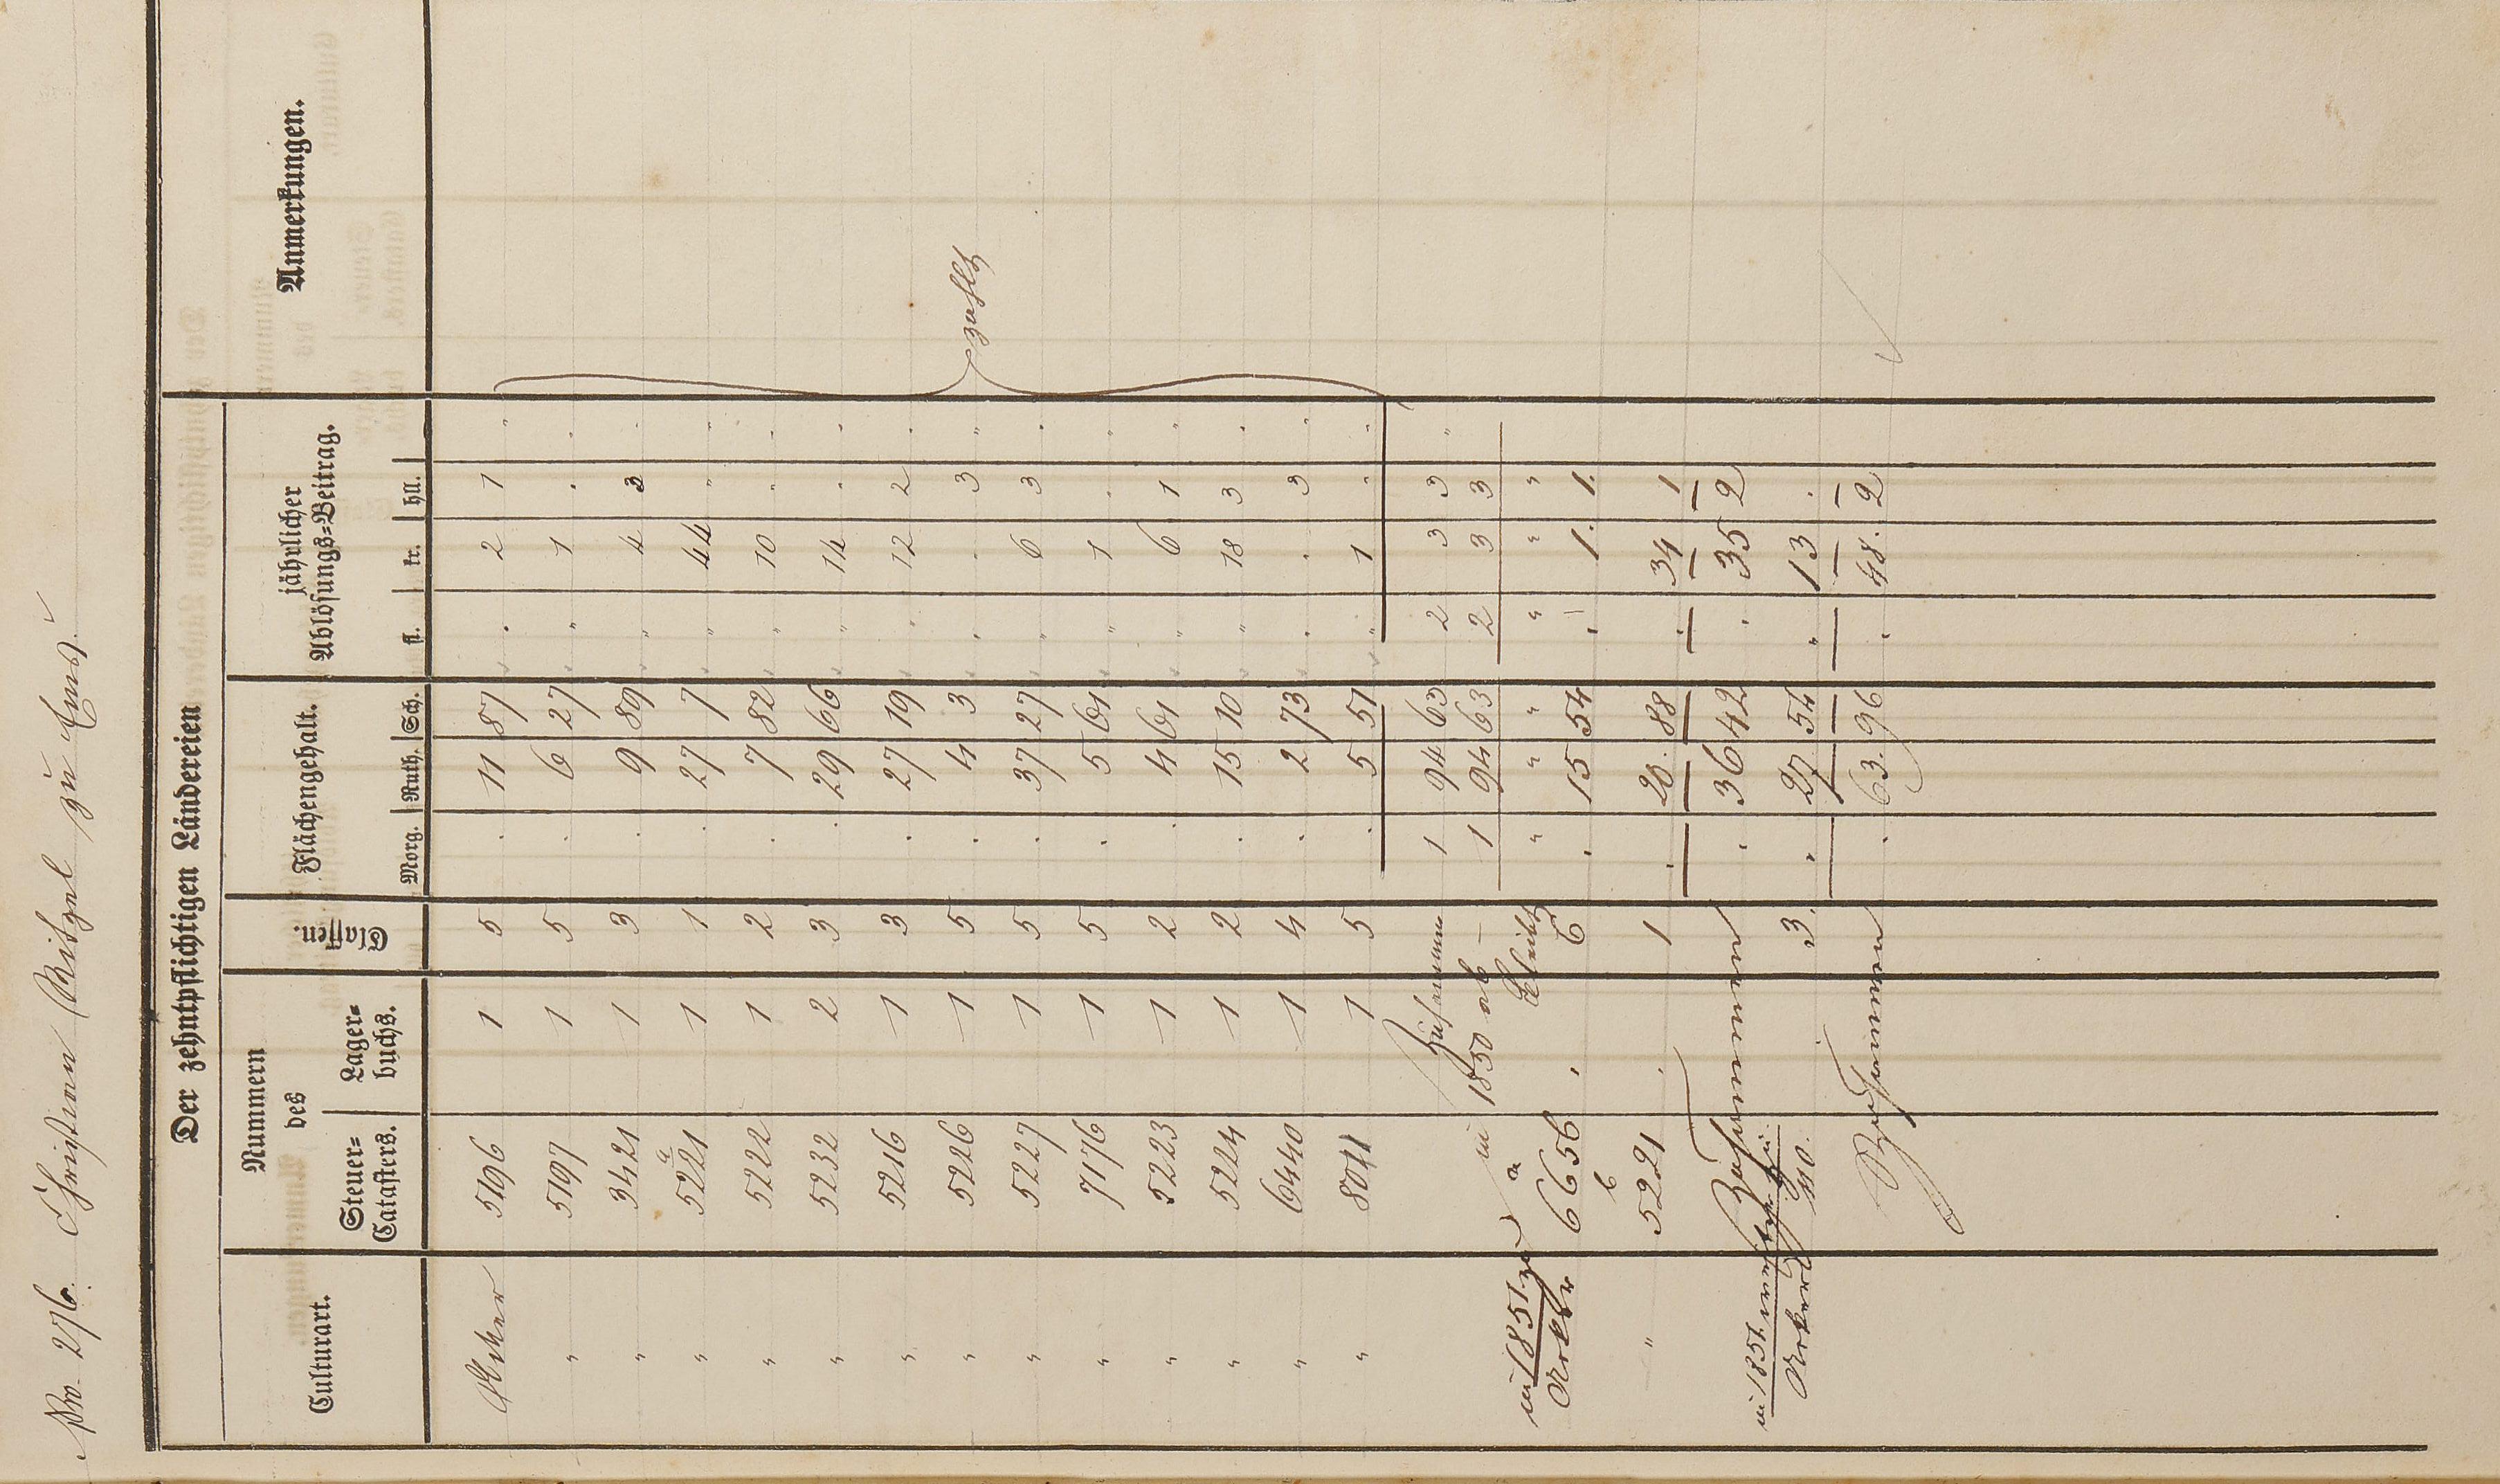 No. 276. Christian Bitzel zu Ems.
Der zehntpflichtigen Ländereien
Culturart.
Nummern
des
Steuer=
Catasters.
Lager=
buchs.
Classen.
Flächengehalt.
Morg. Ruth. Sch.
jährlicher
Ablösungs=Beitrag.
fl. kr. hll.
Anmerkungen.
Acker 5196 1 5 . 11 87 . 2 1 "
" 5197 1 5 . 6 27 " 1 . .
" 3421 1 3 . 9 89 " 4 3 .
" 5221 a 1 1 . 27 7 " 44 " .
" 5222 1 2 . 7 82 " 10 . .
" 5232 2 3 . 29 66 " 14 . .
" 5216 1 3 . 27 19 . 12 2 .
" 5226 1 5 . 4 3 . . 3 "
" 5227 1 5 . 37 27 " 6 3 .
" 7176 1 5 . 5 61 " 1 . .
" 5223 1 2 . 4 61 " 6 1 "
" 5224 1 2 . 15 10 " 18 3 .
" 6440 1 4 . 2 73 . . 3 .
" 8041 1 5 . 5 51 " 1 . .
zahlt
Zusammen 1 94 63 2 3 3 "
in 1850 ab — 1 94 63 2 3 3
Bleibt " " " " " "
in 1851 zu
Acker 6656 a . 6 . 15 54 . 1. 1.
" 5221 b . 1 . 20. 88 . 34 1
Zusammen . 36 42 . 35 2
in 1851
Acker 3. . 27 54 " 13 .
Zusammen . 63. 96 . 48. 2